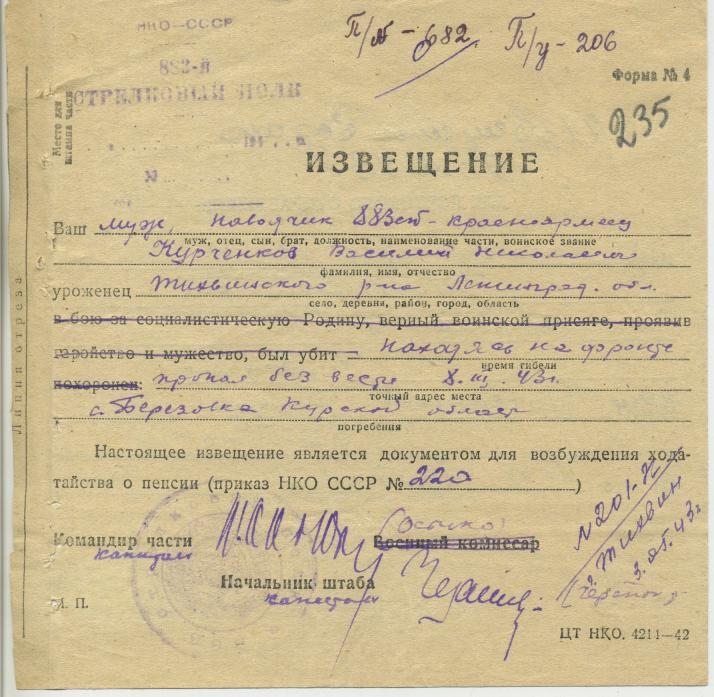 НКО—СССР
П/№ - 682. П/у - 206
883-й
СТРЕЛКОВЫЙ ПОЛК
Форма № 4
235
Место для
штампа части
194 г.
№
ИЗВЕЩЕНИЕ
Ваш муж, наводчик 883 сп - красноармеец
муж, отец, сын, брат, должность, наименование части, воинское звание
Курченков Василий Николаевич
фамилия, имя, отчество
уроженец Тихвинского р-на Ленинград. обл.
село, деревня, район, город, область
в бою за социалистическую Родину, верный воинской присяге, проявив
геройство и мужество, был убит - находясь на фронте
время гибели
похоронен: пропал без вести 8.III.43 г.
точный адрес места
с. Березовка Курской области
погребения
Настоящее извещение является документом для возбуждения хода-
тайства о пенсии (приказ НКО СССР № 220)
Командир части
капитан
Военный комиссар
Начальник штаба
капитан
М. П.
Линия отреза
г. Тихвин
ЦТ НКО. 4214—42